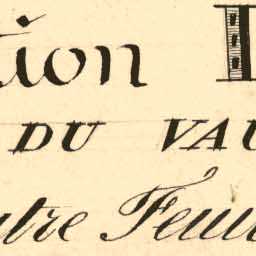 tion
DU VAU
utre Feuil